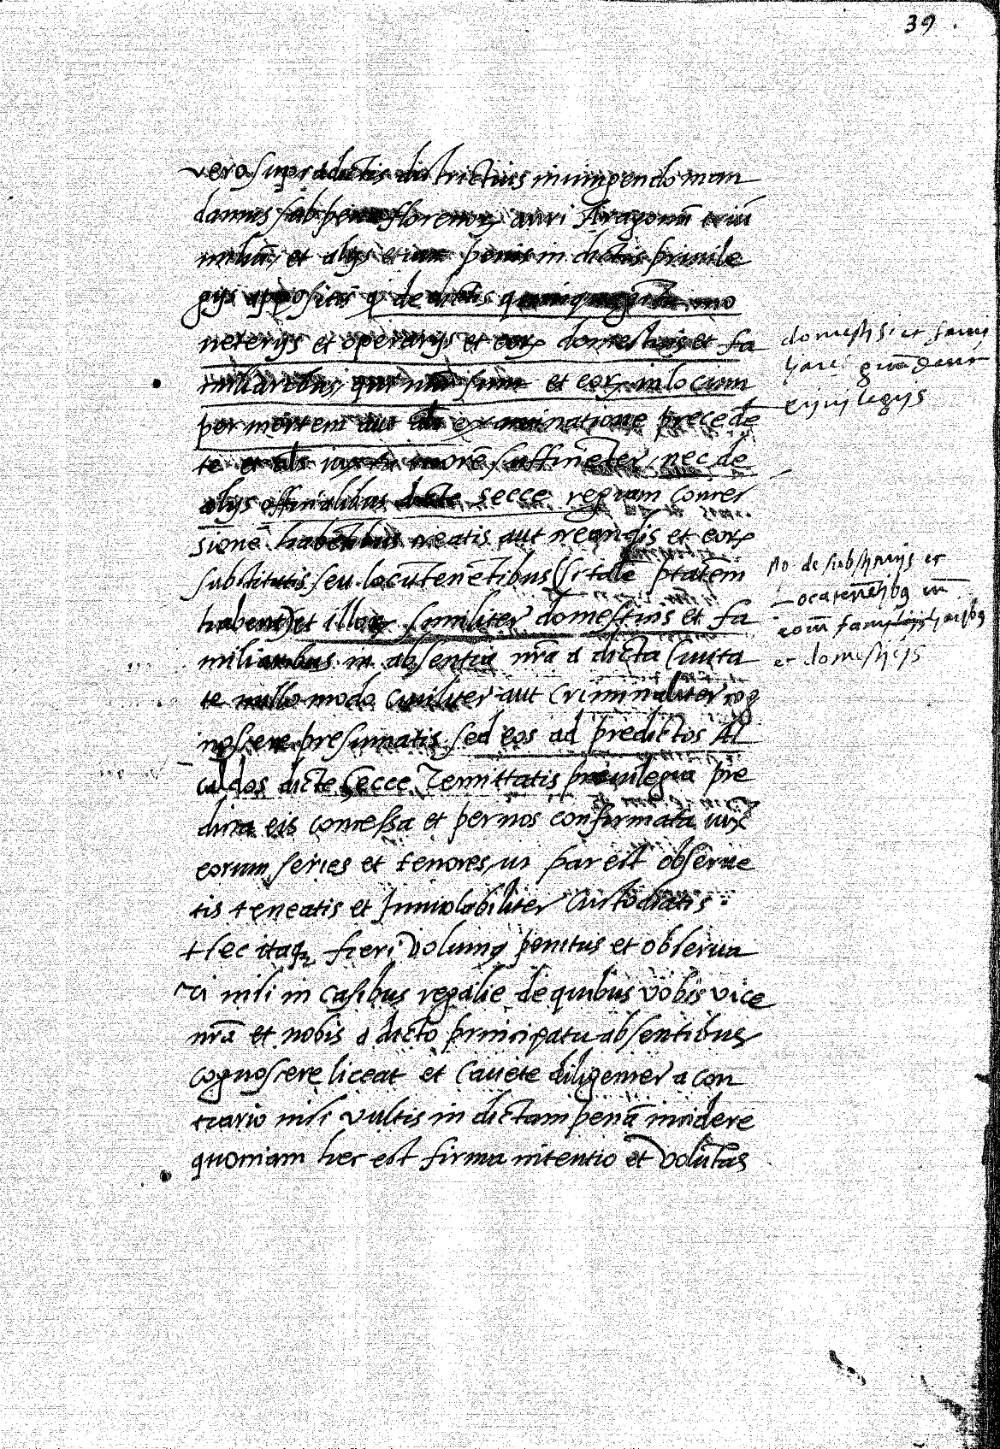 39
vero supradictis districtius iniungendo man
damus sub pena florenorum auri Aragonū triū
miliū et alijs etiam penis in dictis privile
gijs appositis q̄ de dictis quinquaginta mo
netarijs et operarijs et eorum domesticis et fa
miliaribus qui nūc sunt et eorum in locum
per mortem aut examinatione precedē
te et juxta morē suffiniēter nec de
alijs officialibus dicte secce regiam comer
sionē habētibus creatis aut creandis et eorum
substitutis seu locūtenētibus (si talē ptatēm
habent) et illorum similiter domesticis et fa
miliaribus in absentia nrā a dicta Civita
te nullo modo civiliter aut criminaliter cog
noscere presumatis sed eos ad predictos Al
caldos dicte Secce remittatis privilegia pre
dicta eis concessa et per nos confirmata iux
eorum series et tenores, ut par est observe
tis teneatis et Inviolabiliter custodiatis
Hec itaq fieri volumq penitus et observa
ri nisi in casibus regalie de quibus vobis vice
nrā et nobis a dicto principatu absentibus
cognoscere liceat et Cavete diligenter a con
trario nisi vultis in dictam penā incidere
quoniam hec est firma intentio et volūtas
domestici et fami
liares gaudent
privilegijs
No de substitutis et
Locatenētibq
eorū familiaribq
et domesticis